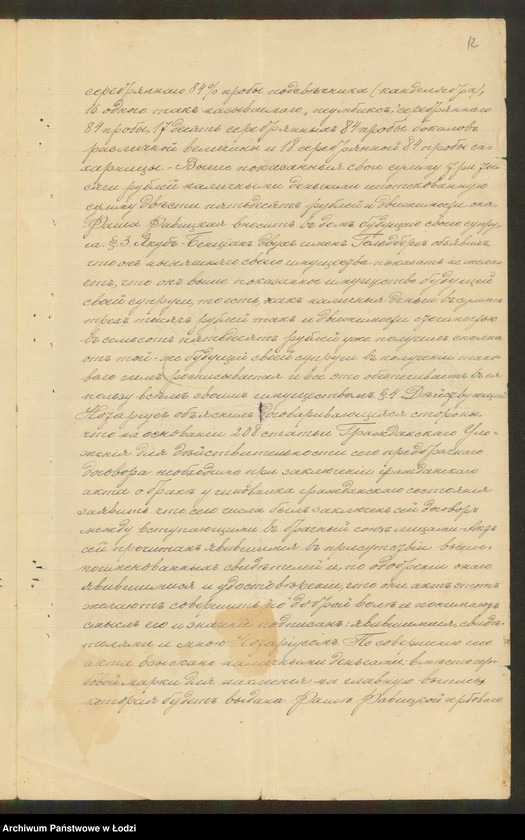 12
серебряннаго 84% пробы подсвѣчника (канделября),
16 одного такъ называемаго серебряннаго
84 пробы, 17 десять серебрянныхъ 84 пробы бокаловъ
различной величины и 18 серебрянной 84 пробы са-
харницы. Выше показанныя свои сумму три ты-
сячи рублей наличными деньгами
сумму двѣсти пятьдесятъ рублей и движимости она
Файга Равицкая вноситъ въ домъ будущаго своего супру-
га. §.3. Якубъ Бенціанъ двухъ именъ объявилъ
что онъ нынѣшняго своего имущества показать не жела-
етъ, что онъ выше показанное имущество будущей
своей супруги, то есть, какъ наличныя деньги въ суммѣ
трехъ тысячъ рублей такъ и движимости стоимостью
въ семьсотъ пятьдесятъ рублей уже получилъ сполна
отъ той-же будущей своей супруги въ полученіи тако-
ваго симъ росписывается и все это обезпечиваетъ въ ея
пользу всѣмъ своимъ имуществомъ. §.4 Дѣйствующій
Нотаріусъ объяснилъ договаривающимся сторонамъ,
что на основаніи 208 статьи Гражданскаго Уло-
женія для дѣйствительности сего предбрачнаго
договора необходимо при заключеніи гражданскаго
акта о бракѣ у чиновника гражданскаго состоянія
заявить что сего числа былъ заключенъ сей договоръ
между вступающими въ брачный союзъ лицами. Актъ
сей прочитанъ явившимся въ присутствіи выше-
поименованныхъ свидѣтелей и, по одобреніи онаго
явившимися и удостовѣреніи, что они актъ этотъ
желаютъ совершить по доброй волѣ и понимаютъ
смыслъ его и значеніе подписанъ: явившимися, свидѣ-
телями и мною Нотаріусомъ. По совершеніи сего
акта взыскано наличными деньгами: вмѣсто гер-
бовой марки для наклейки на главную выпись,
которая будетъ выдана Равицкой гербоваго